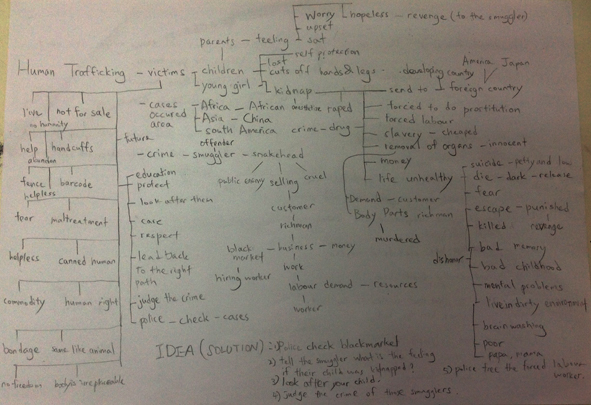 worry hopeless - revenge (to the smuggler)
upset
parents - feeling sat
Human Trafficking - victims children lost self protection
cuts off hands & legs - developing country
America Japan
young girl kidnap send to foreign country
live not for sale
as humanity
cases Africa - African raped
occured Asia - China
area South America crime - drug
forced to do prostitution
forced labour
slavery - cheaped
removal of organs - innocent
money
life unhealthy
help handcuffs
abandon
future
offender
crime - smuggler - snakehead
public enemy selling cruel
customer
richman
business - money
black
market
hiring worker
work
labour demand - resources
worker
Demand - customer
Body Parts richman
murdered
fance barcode
helpless
education
protect
look after them
care
respert
lead back
To the right
path
judge the crime
police - check - cases
fear maltreatment
helpless canned human
commodity human right
bondage same like animal
no freedom body is
suicide - petty and
die - dark - release
fear
escape - punished
killed revenge
dishonor
bad memory
bad childhood
mental problems
live in dirty environment
brainwashing
poor
IDEA (SOLUTION) :- 1) Police check blackmarket
2) tell the smuggler what is the feeling
if their child was kidnapped!
3) look after your child.
4) judge the crime of those smugglers.
5) police free the forced labour
worker.